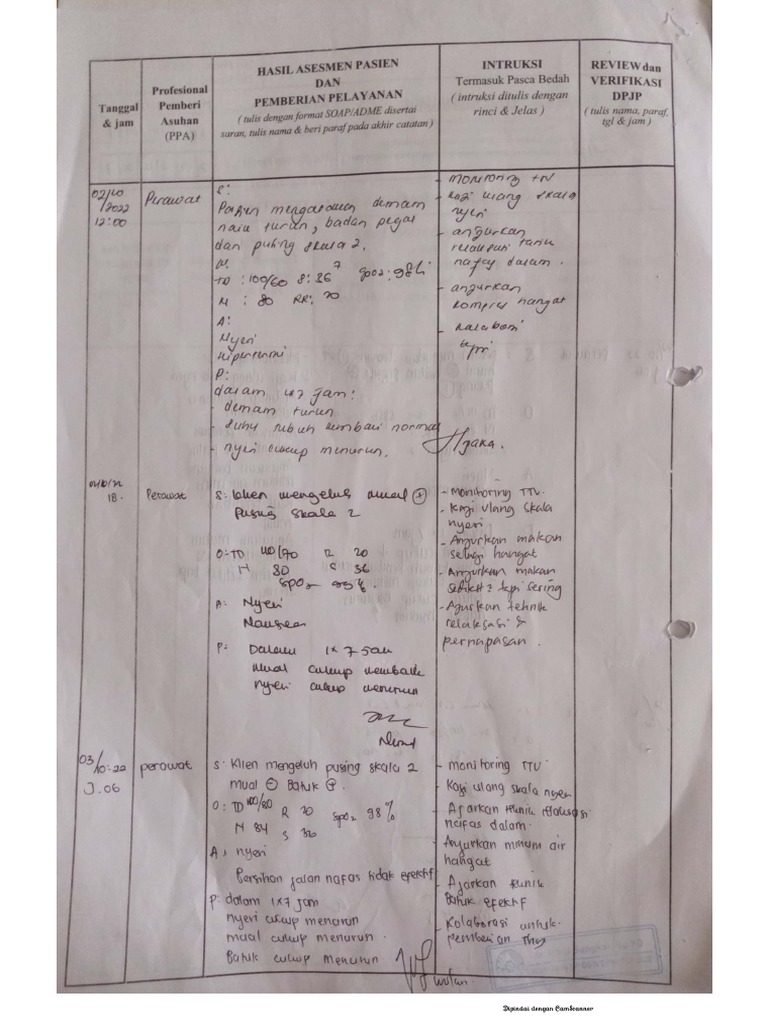 Tanggal & jam
Profesional Pemberi Asuhan (PPA)
HASIL ASESMEN PASIEN
DAN
PEMBERIAN PELAYANAN
( tulis dengan format SOAP/ADME disertai
saran, tulis nama & beri paraf pada akhir catatan )
INTRUKSI
Termasuk Pasca Bedah
( intruksi ditulis dengan
rinci & Jelas )
REVIEW dan
VERIFIKASI
DPJP
( tulis nama, paraf,
tgl & jam )
02/10
/2022
12:00
Perawat
S:
Pasien mengatakan demam
naik turun, badan pegal
dan pusing skala 2.
TD : 100/60 S: 36⁷ SpO2: 98%
N : 80 RR: 20
A:
Nyeri
Hipertermi
P:
dalam 1x7 jam:
- demam turun
- suhu tubuh kembali normal
- nyeri cukup menurun.
- monitoring TTV
- kaji ulang skala
nyeri
- anjurkan
relaksasi tarik
nafas dalam.
- anjurkan
kompres hangat
- kolaborasi
18.
Perawat
S: klien mengeluh mual +
Pusing skala 2
O: TD 110/70 R 20
N 80 S 36
SpO2 99%.
A: Nyeri
Nausea
P: Dalam 1x7 Jam
mual cukup membaik
nyeri cukup menurun
- Monitoring TTV
- Kaji ulang skala
nyeri
- Anjurkan makan
selagi hangat
- Anjurkan makan
sedikit2 tapi sering
- Ajurkan tehnik
relaksasi &
pernapasan.
03/
10-22
J.06
perawat
S: Klien mengeluh pusing skala 2
mual ⊖ Batuk ⊕
O: TD 100/80 R 20 SpO2 98%
N 84 S
A: nyeri
Bersihan jalan nafas tidak efektif
P: dalam 1x7 jam
nyeri cukup menurun
mual cukup menurun
Batuk cukup menurun
wulan.
- monitoring TTV
- Kaji ulang skala nyeri
- Ajarkan teknik relaksasi
nafas dalam.
- Anjurkan minum air
hangat
- Ajarkan teknik
Batuk efektif
- Kolaborasi untuk
pemberian
Dipindai dengan CamScanner